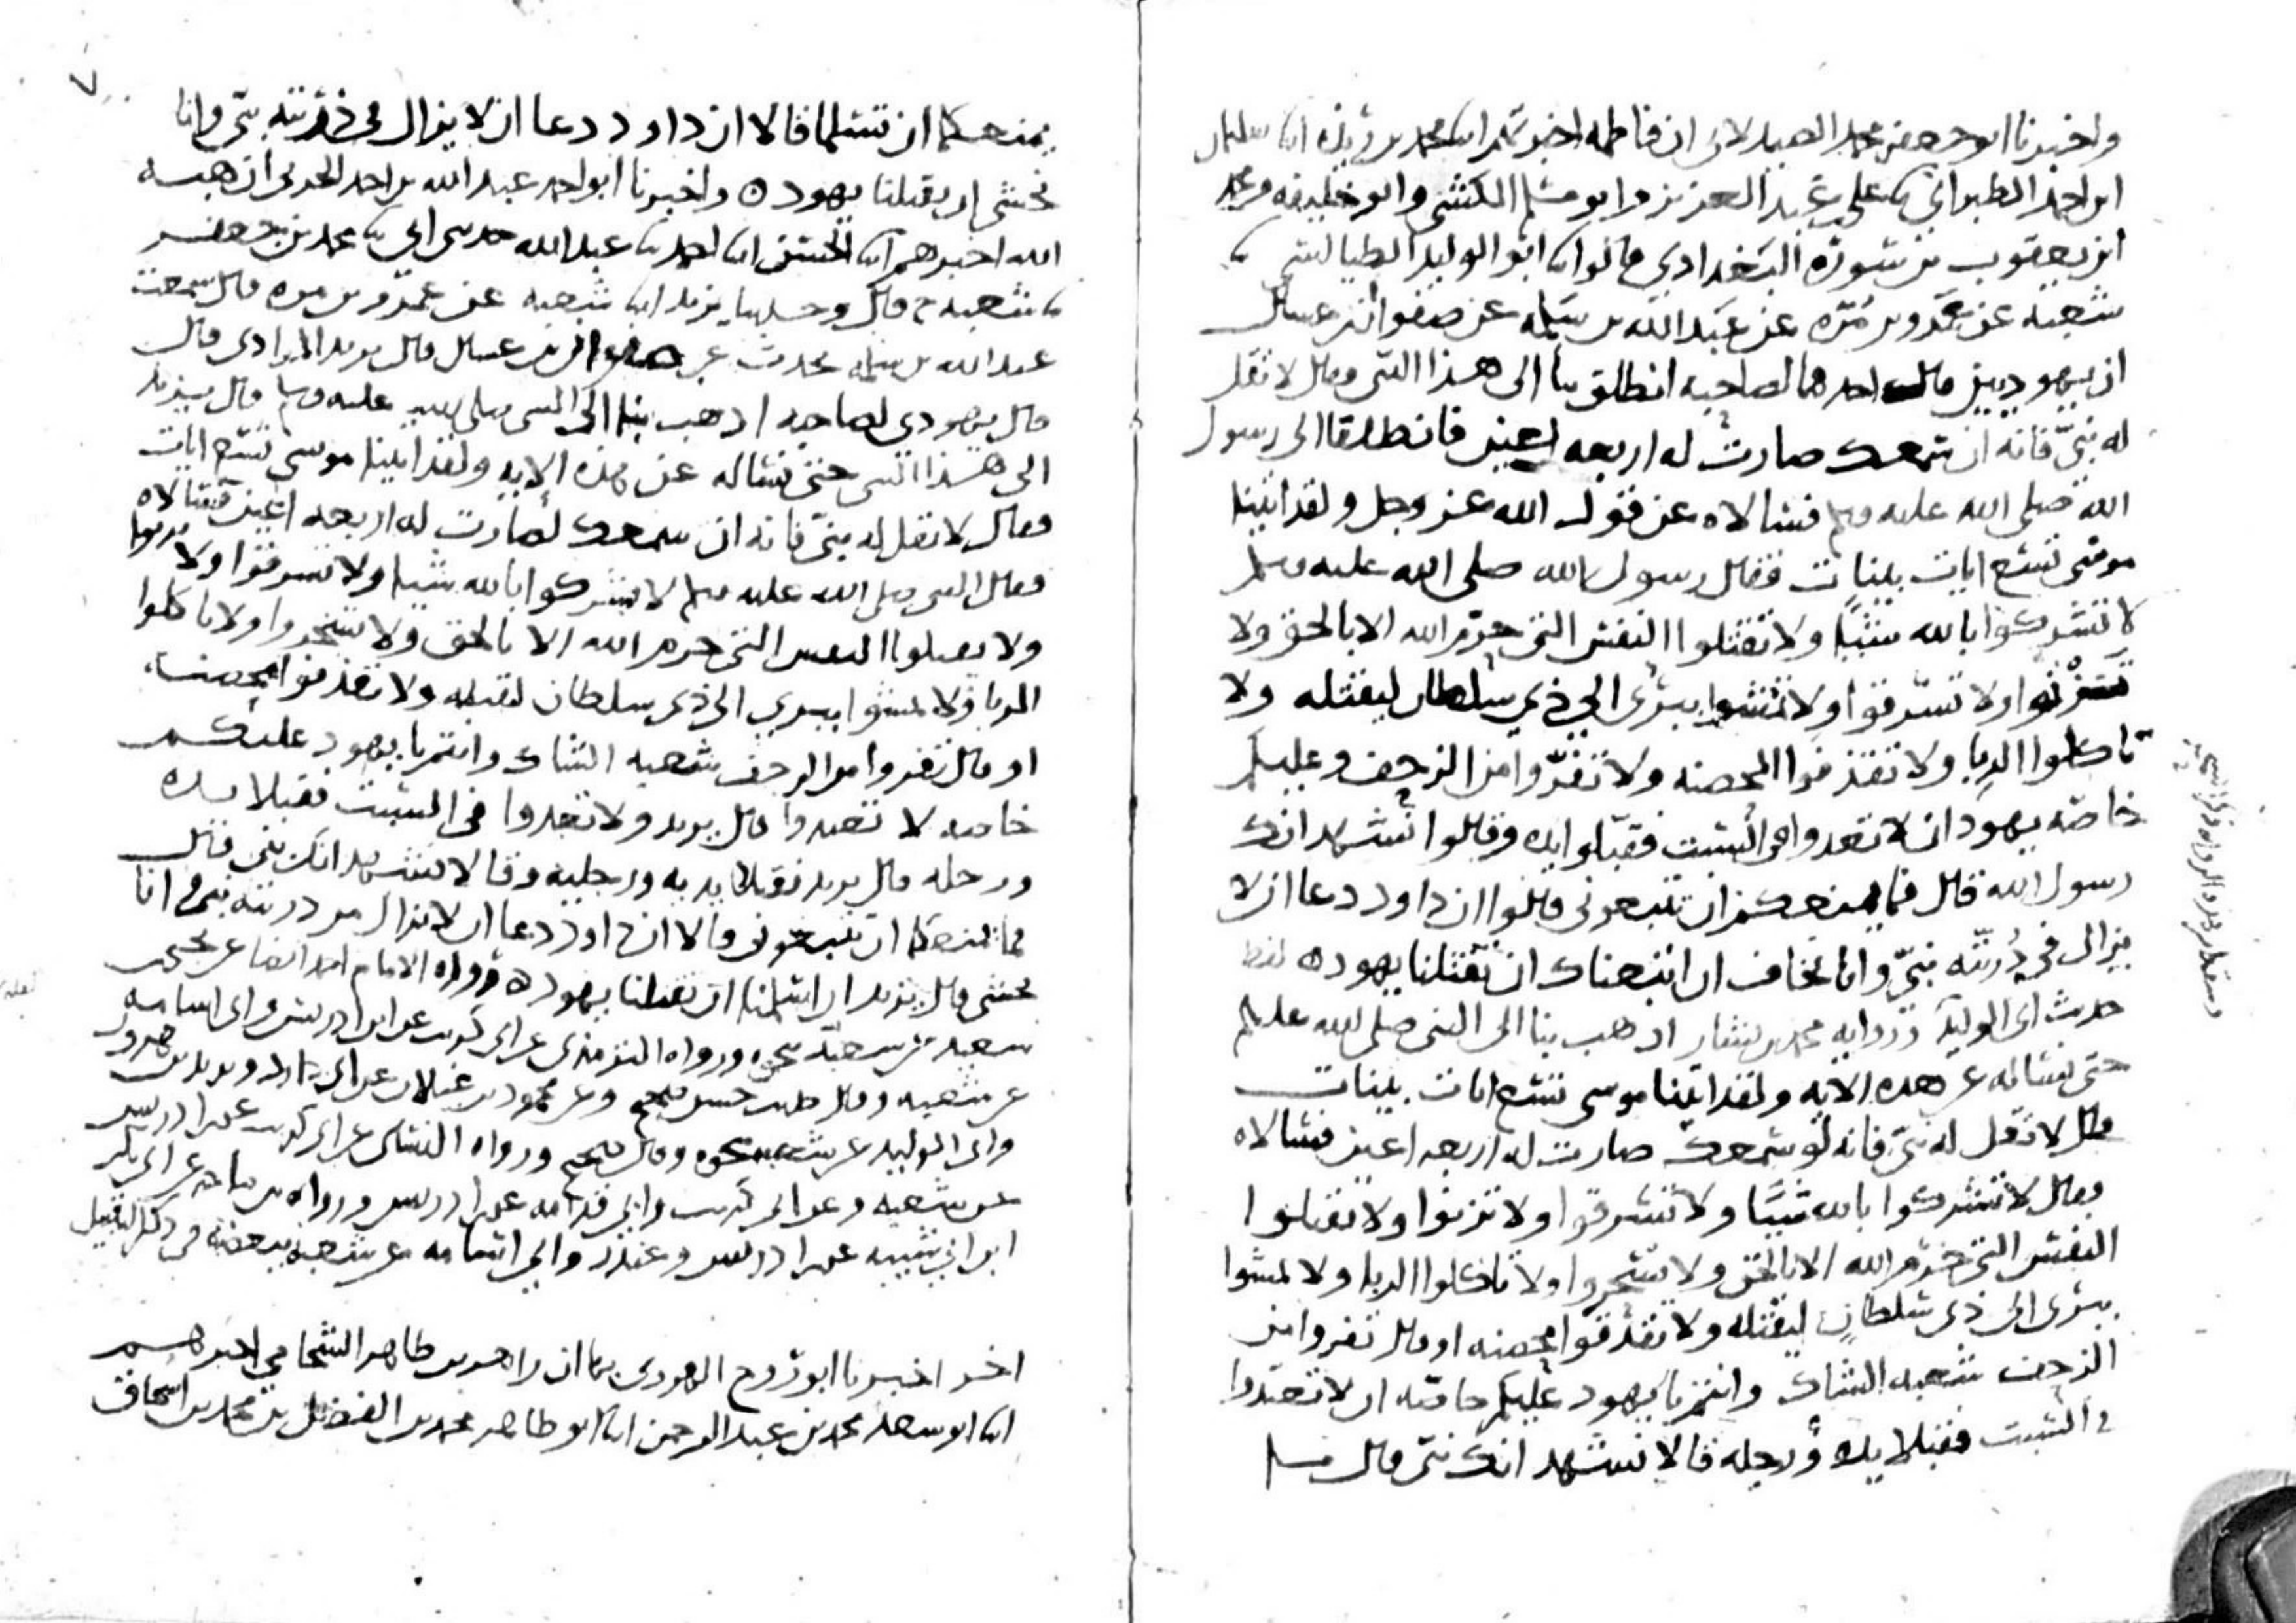 واخبرنا ابو جعفر محمد الصيدلاني ان فاطمه اخبرتهم ابنا محمد بن ريذه ابنا سليمان
ابن احمد الطبراني ثنا علي بن عبد العزيز وابو مسلم الكشي وابو خليفه ومحمد
ابن يعقوب بن سورة البغدادي قالوا ثنا ابو الوليد الطيالسي ثنا
شعبه عن عمرو بن مره عن عبد الله بن سلمه عن صفوان بن عسال
ان يهوديين قال احدهما لصاحبه انطلق بنا الى هذا النبي وقال لا تقل
له نبي فانه ان سمعك صارت له اربعه اعين فانطلقا الى رسول
الله صلى الله عليه وسلم فسالاه عن قول الله عز وجل ولقد اتينا
موسى تسع ايات بينات فقال رسول الله صلى الله عليه وسلم
لا تشركوا بالله شيئا ولا تقتلوا النفس التي حرم الله الا بالحق ولا
تزنوا ولا تسرقوا ولا تمشوا ببرئ الى ذي سلطان ليقتله ولا
تاكلوا الربا ولا تقذفوا المحصنه ولا تفروا من الزحف وعليكم
خاصه يهود ان لا تعدوا في السبت فقبلوا يده وقالوا نشهد انك
رسول الله قال فما يمنعكم ان تتبعوني قالوا ان داود دعا ان لا
يزال في ذريته نبي وانا نخاف ان اتبعناك ان تقتلنا يهود ه لفظ
حديث ابي الوليد وروايه محمد بن بشار اذهب بنا الى النبي صلى الله عليه وسلم
حتى نساله عن هذه الايه ولقد اتينا موسى تسع ايات بينات
قال لا تقل له نبي فانه لو سمعك صارت له اربعه اعين فسالاه
فقال لا تشركوا بالله شيئا ولا تسرقوا ولا تزنوا ولا تقتلوا
النفس التي حرم الله الا بالحق ولا تسحروا ولا تاكلوا الربا ولا تمشوا
ببرئ الى ذي سلطان ليقتله ولا تقذفوا محصنه او قال تفروا من
الزحف شعبه الشاك وانتم يا يهود عليكم خاصه ان لا تعتدوا
في السبت فقبلا يده ورجله قالا نشهد انك نبي قال فما
يمنعكما ان تسلما قالا ان داود دعا ان لا يزال في ذريته نبي وانا
نخشى ان يقتلنا يهود ه واخبرنا ابو احمد عبد الله بن احمد الحربي ان هبه
الله اخبرهم ابنا الحسن ابنا احمد ثنا عبد الله حدثني ابي ثنا محمد بن جعفر
ثنا شعبه ح قال وحدثنا يزيد ابنا شعبه عن عمرو بن مره قال سمعت
عبد الله بن سلمه يحدث عن صفوان بن عسال قال يزيد المرادي قال
قال يهودي لصاحبه اذهب بنا الى النبي صلى الله عليه وسلم قال يزيد
الى هذا النبي حتى نساله عن هذه الايه ولقد اتينا موسى تسع ايات
فقال لا تقل له نبي فانه ان سمعك لصارت له اربعه اعين فسالاه
فقال النبي صلى الله عليه وسلم لا تشركوا بالله شيئا ولا تسرقوا ولا تزنوا
ولا تقتلوا النفس التي حرم الله الا بالحق ولا تسحروا ولا تاكلوا
الربا ولا تمشوا ببرئ الى ذي سلطان ليقتله ولا تقذفوا محصنه
او قال تفروا من الزحف شعبه الشاك وانتم يا يهود عليكم
خاصه لا تعتدوا قال يزيد ولا تعدوا في السبت فقبلا يده
ورجله قال يزيد فقبلا يديه ورجليه وقالا نشهد انك نبي قال
فما يمنعكما ان تتبعوني قالا ان داود دعا ان لا يزال من ذريته نبي وانا
نخشى قال يزيد ان اسلمنا ان تقتلنا يهود ه ورواه الامام احمد ايضا عن يحيى
سعيد عن شعبه نحوه ورواه الترمذي عن ابي كريب عن ابن ادريس وابي اسامه
عن شعبه وقال حديث حسن صحيح وعن محمود بن غيلان عن ابي داود ويزيد بن هرون
وابي الوليد عن شعبه نحوه وقال صحيح ورواه النسائي عن ابي كريب عن ابن ادريس
عن شعبه وعن ابي كريب وابي قدامه عن ابن ادريس ورواه بن ماجه عن ابي بكر
ابن ابي شيبه عن ابن ادريس وغندر وابي اسامه عن شعبه ببعضه في ذكر التقبيل
اخر اخبرنا ابو روح الهروي بها ان زاهر بن طاهر الشحامي اخبرهم
ابنا ابو سعد محمد بن عبد الرحمن ابنا ابو طاهر محمد بن الفضل بن محمد بن اسحاق